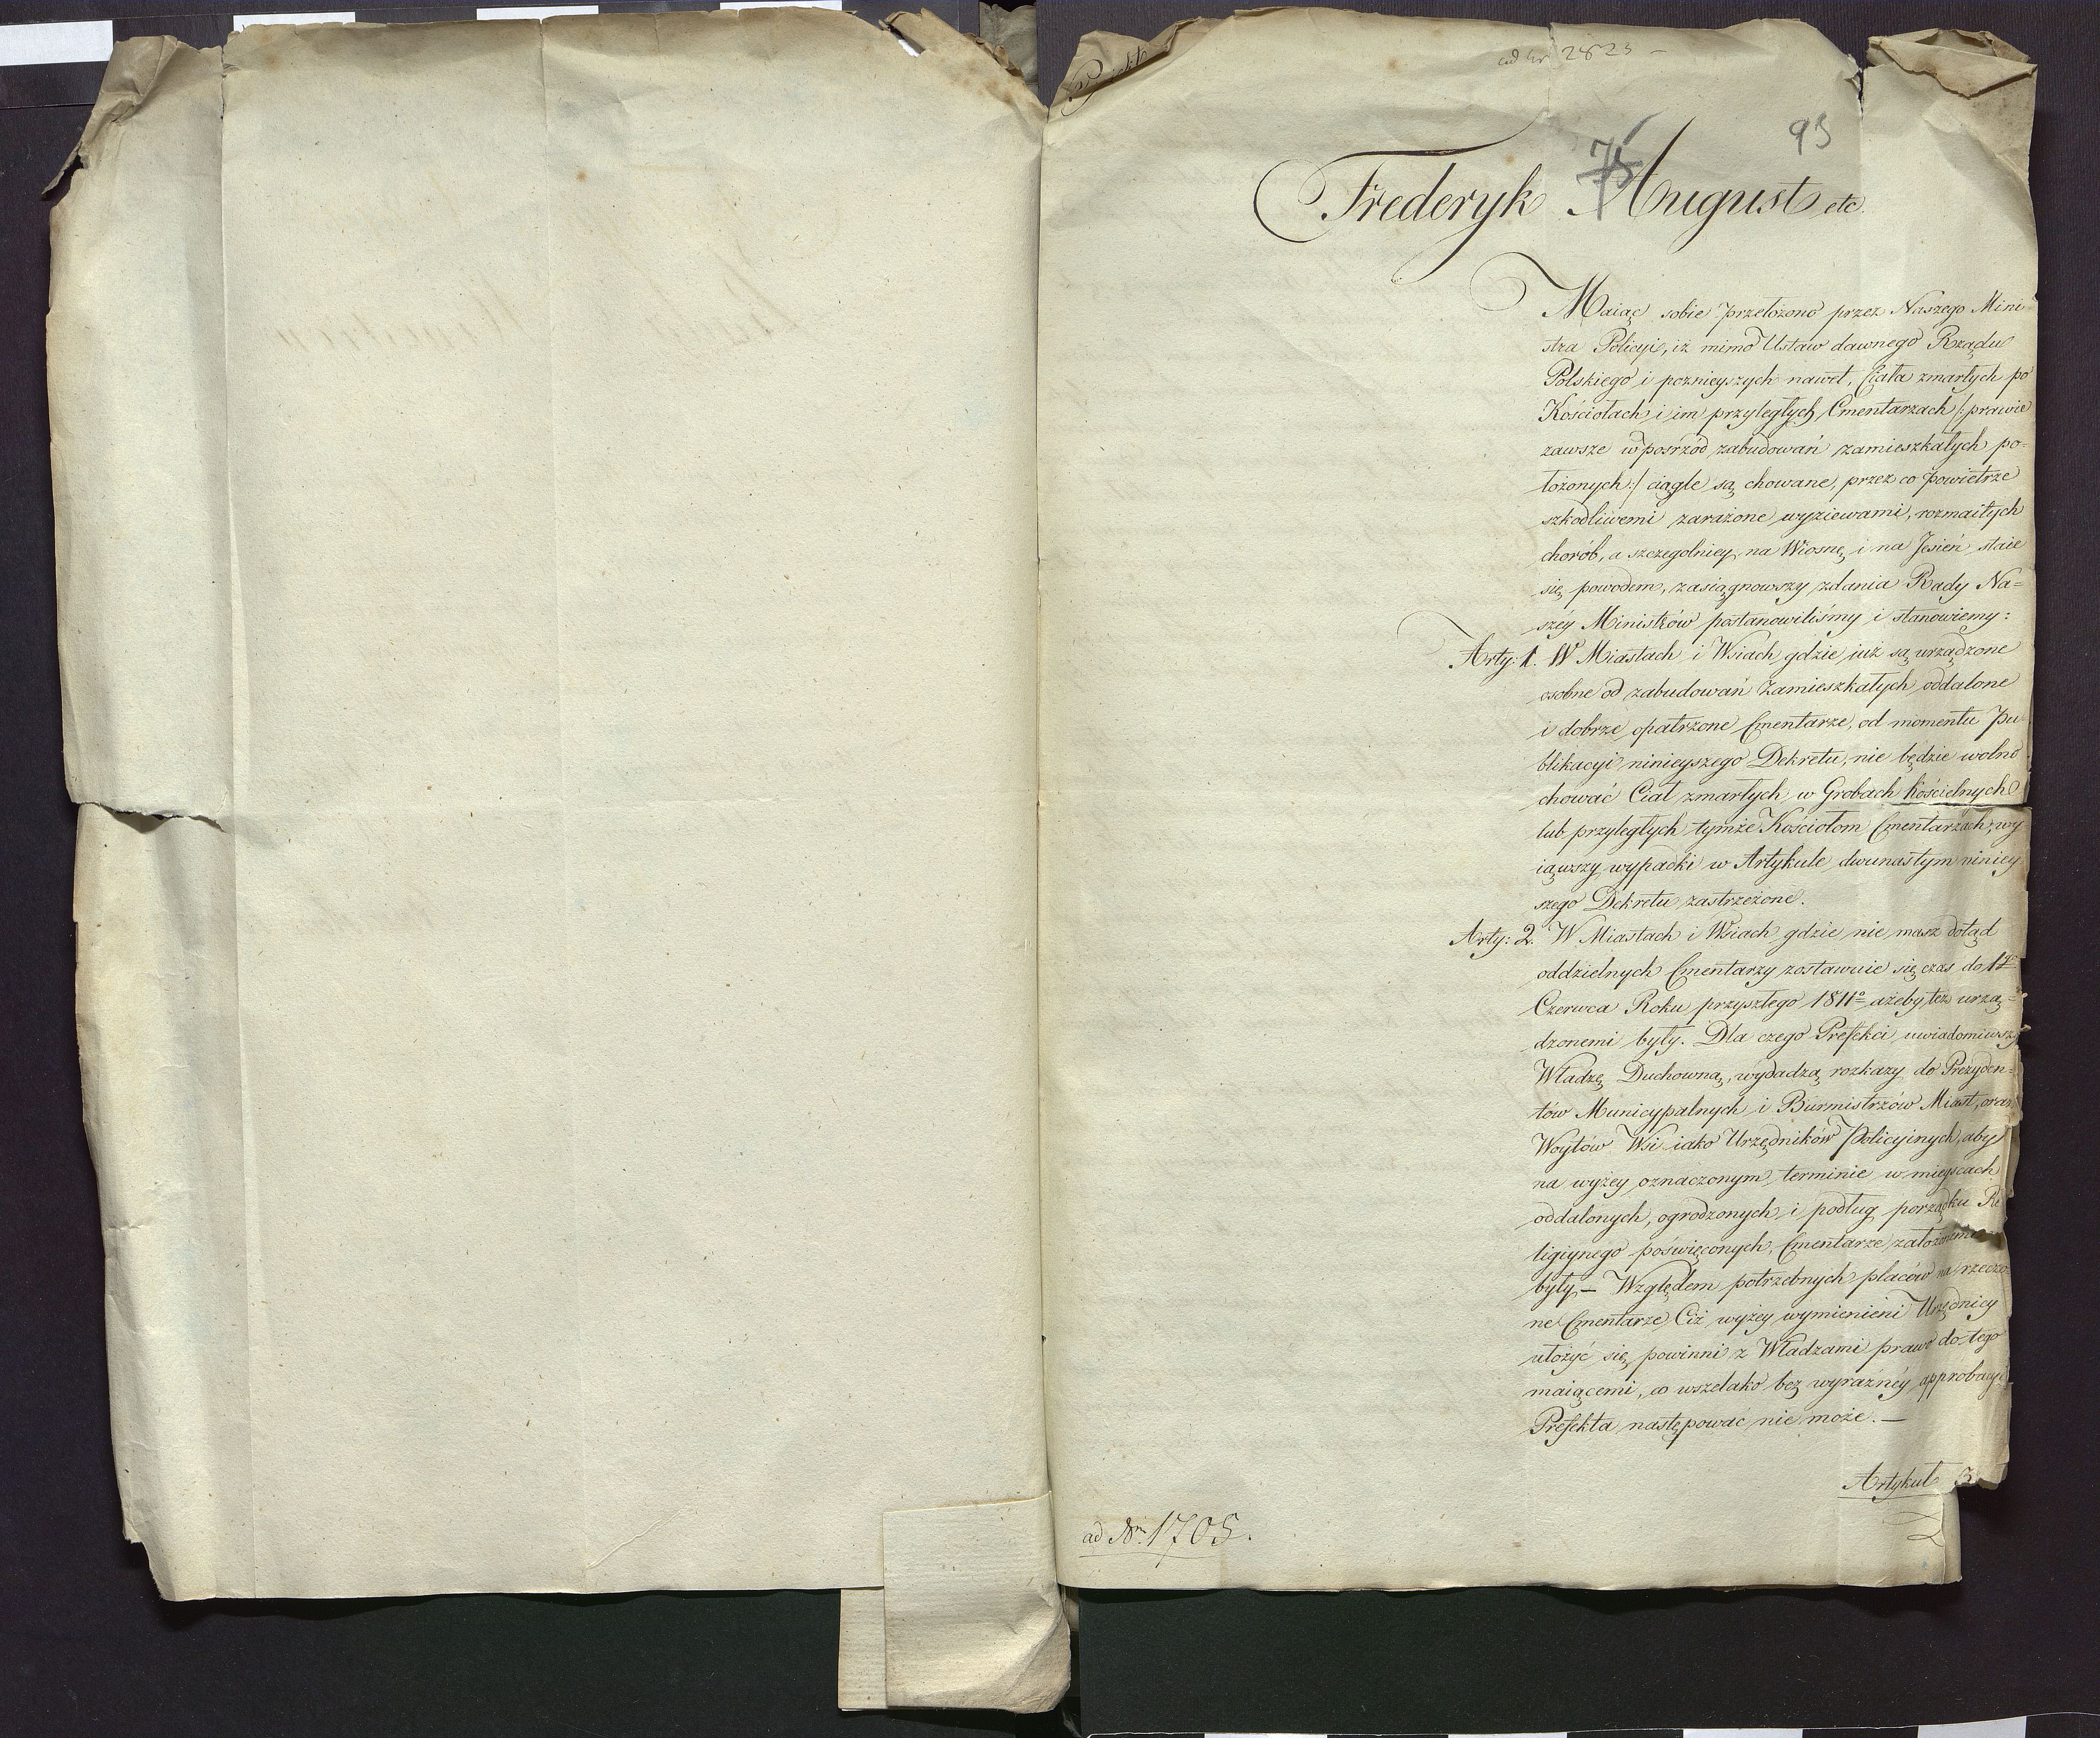 ad Nr 2823 –
93
75
Frederyk August etc.
Maiąc sobie przełożono przez Naszego Mini-
stra Policyi, iż mimo Ustaw dawnego Rządu
Polskiego i poznieyszych nawet, Ciała zmarłych po
Kościołach i im przyległych Cmentarzach /: prawie
zawsze w posrzód zabudowań zamieszkałych po=
łożonych :/ ciągle są chowane, przez co powietrze
szkodliwemi zarażone wyziewami, rozmaitych
chorób, a szczegolniey na Wiosnę i na Jesień staie
się powodem, zasiągnowszy zdania Rady Na=
széy Ministrów postanowiliśmy i stanowiemy:
Arty: 1. W Miastach i Wsiach gdzie iuż są urządzone
osobne od zabudowań zamieszkałych oddalone
i dobrze opatrzone Cmentarze, od momentu Pu-
blikacyi ninieyszego Dekretu, nie będzie wolno
chować Ciał zmarłych w Grobach kościelnych
lub przyległych tymże Kościołom Cmentarzach, wy-
iąwszy wypadki w Artykule dwunastym niniey
szego Dekretu zastrzeżone.
Arty: 2. W Miastach i Wsiach gdzie nie masz dotąd
oddzielnych Cmentarzy zostawuie się czas do 1go
Czerwca Roku przyszłego 1811o ażeby też urzą=
dzonemi były. Dla czego Prefekci uwiadomiwszy
Władzę Duchowną, wydadzą rozkazy do Prezyden=
tów Municypalnych i Burmistrzów Miast, oraz
Woytów Wsi iako Urzędników Policyinych, aby
na wyżey oznaczonym terminie w mieyscach
oddalonych, ogrodzonych i podług porządku Re
ligiynego poświęconych, Cmentarze założonemi
były – Względem potrzebnych placów na rzeczo-
ne Cmentarze Ciż wyżey wymienieni Urzędnicy
ułożyć się powinni z Władzami prawo do tego
maiącemi, co wszelako bez wyraźnéy approbacyi
Prefekta następować nie może. –
Artykuł 3
ad Nrm 1705.